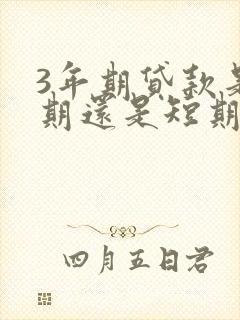 3年期貸款是
期還是短期
四月五日君